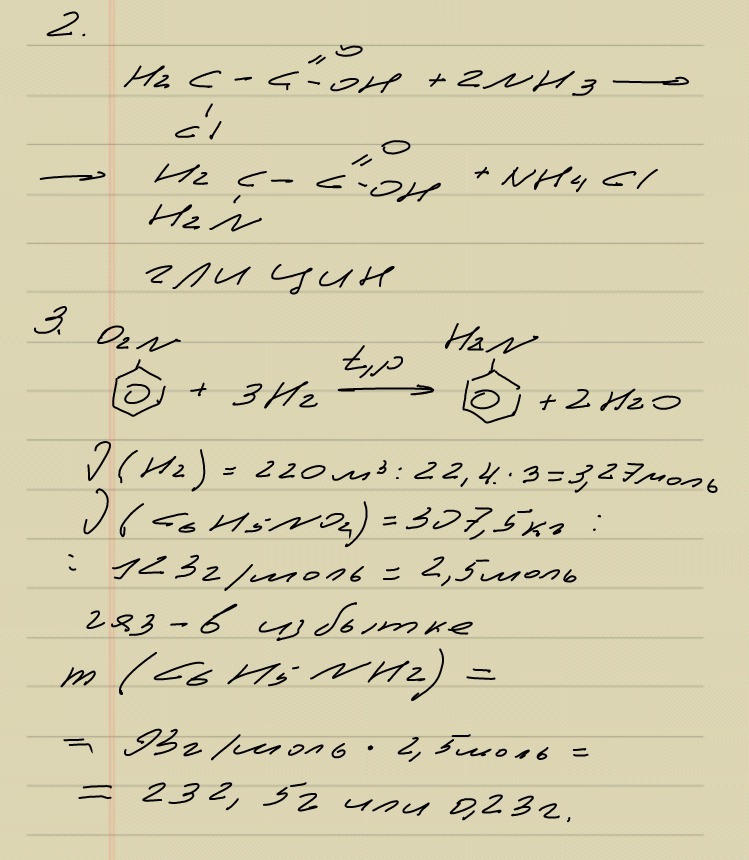 2.
H2 C - C =O - OH + 2NH3 →
Cl
→ H2 C - C =O - OH + NH4 Cl
H2 N
глицин
3. O2N H2N
+ 3H2 t, p → + 2H2O
ν (H2) = 220 м³ : 22,4 · 3 = 3,27 моль
ν (C6 H5 NO2) = 307,5 кг :
: 123 г/моль = 2,5 моль
газ - в избытке
m (C6 H5 NH2) =
= 93 г/моль · 2,5 моль =
= 232, 5 г или 0,23 г.